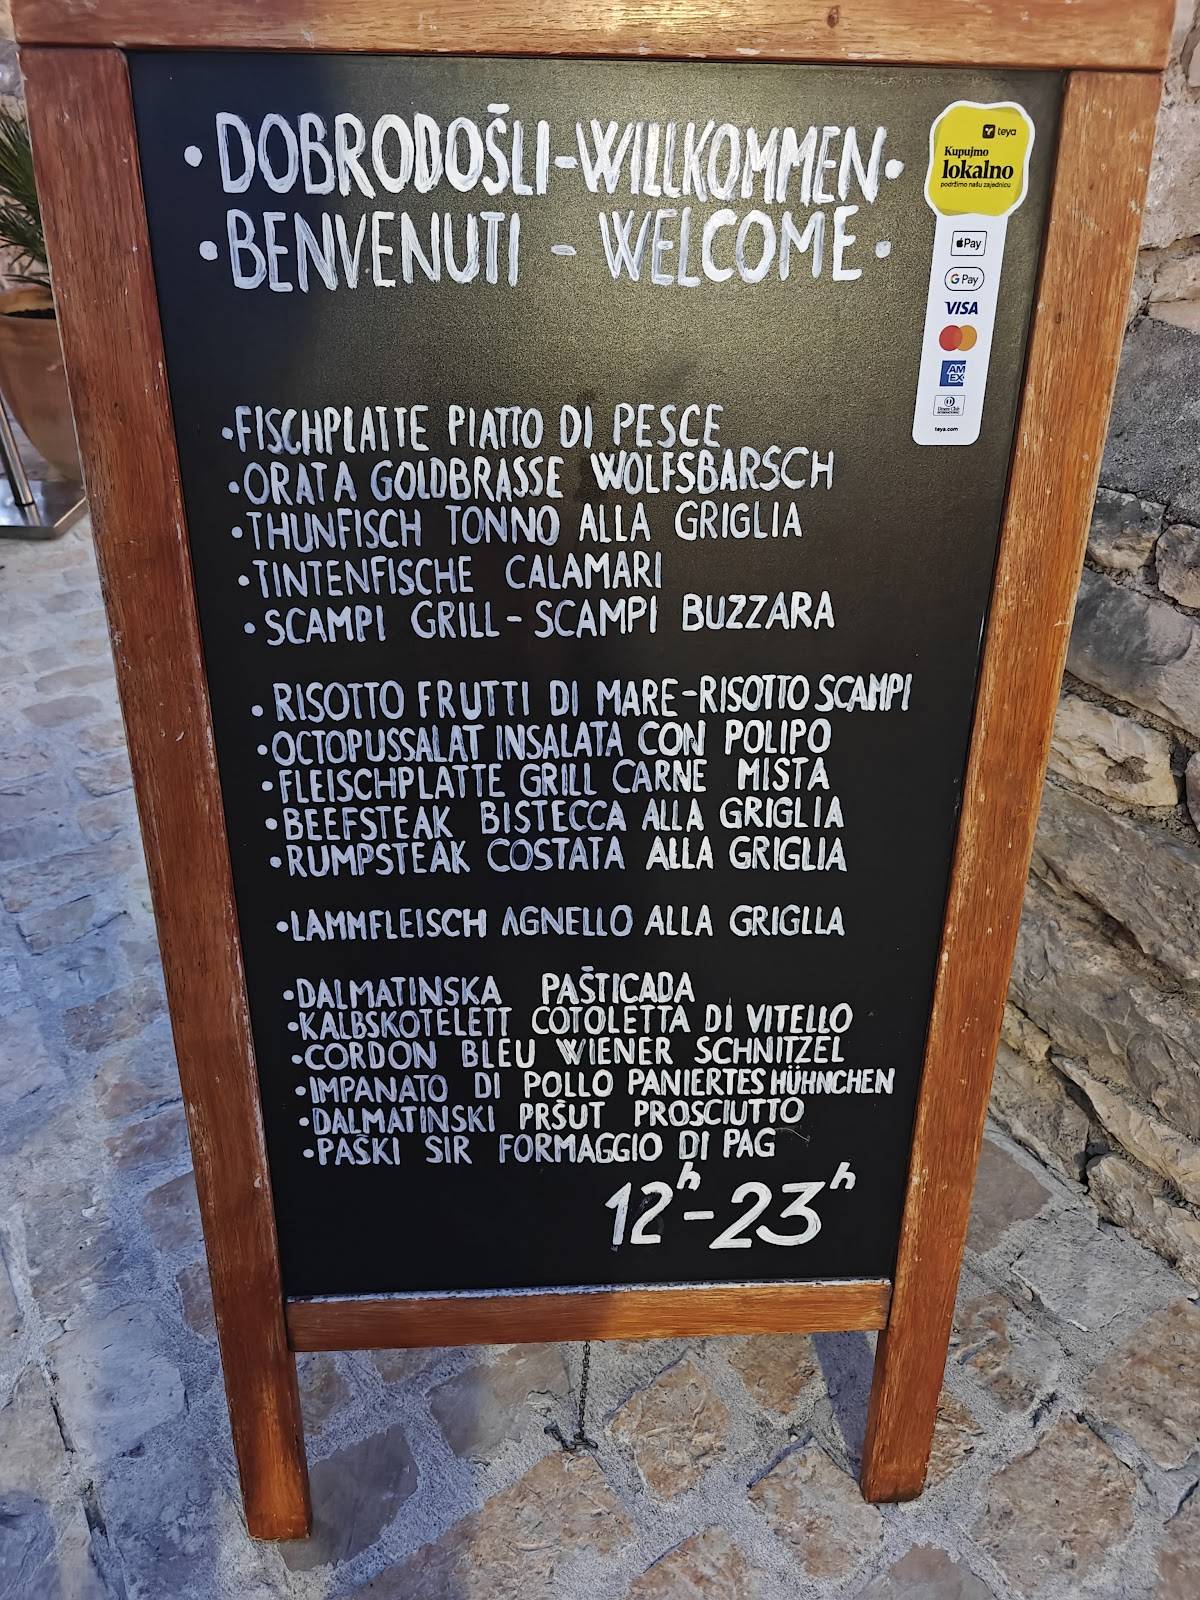 • DOBRODOŠLI-WILLKOMMEN •
• BENVENUTI - WELCOME •
teya
Kupujmo
lokalno
podržimo našu zajednicu
Pay
G Pay
VISA
AM
EX
Diners Club
INTERNATIONAL
teya.com
• FISCHPLATTE PIATTO DI PESCE
• ORATA GOLDBRASSE WOLFSBARSCH
• THUNFISCH TONNO ALLA GRIGLIA
• TINTENFISCHE CALAMARI
• SCAMPI GRILL - SCAMPI BUZZARA
• RISOTTO FRUTTI DI MARE-RISOTTO SCAMPI
• OCTOPUSSALAT INSALATA CON POLIPO
• FLEISCHPLATTE GRILL CARNE MISTA
• BEEFSTEAK BISTECCA ALLA GRIGLIA
• RUMPSTEAK COSTATA ALLA GRIGLIA
• LAMMFLEISCH AGNELLO ALLA GRIGLLA
• DALMATINSKA PAŠTICADA
• KALBSKOTELETT COTOLETTA DI VITELLO
• CORDON BLEU WIENER SCHNITZEL
• IMPANATO DI POLLO PANIERTES HÜHNCHEN
• DALMATINSKI PRŠUT PROSCIUTTO
• PAŠKI SIR FORMAGGIO DI PAG
12h-23h